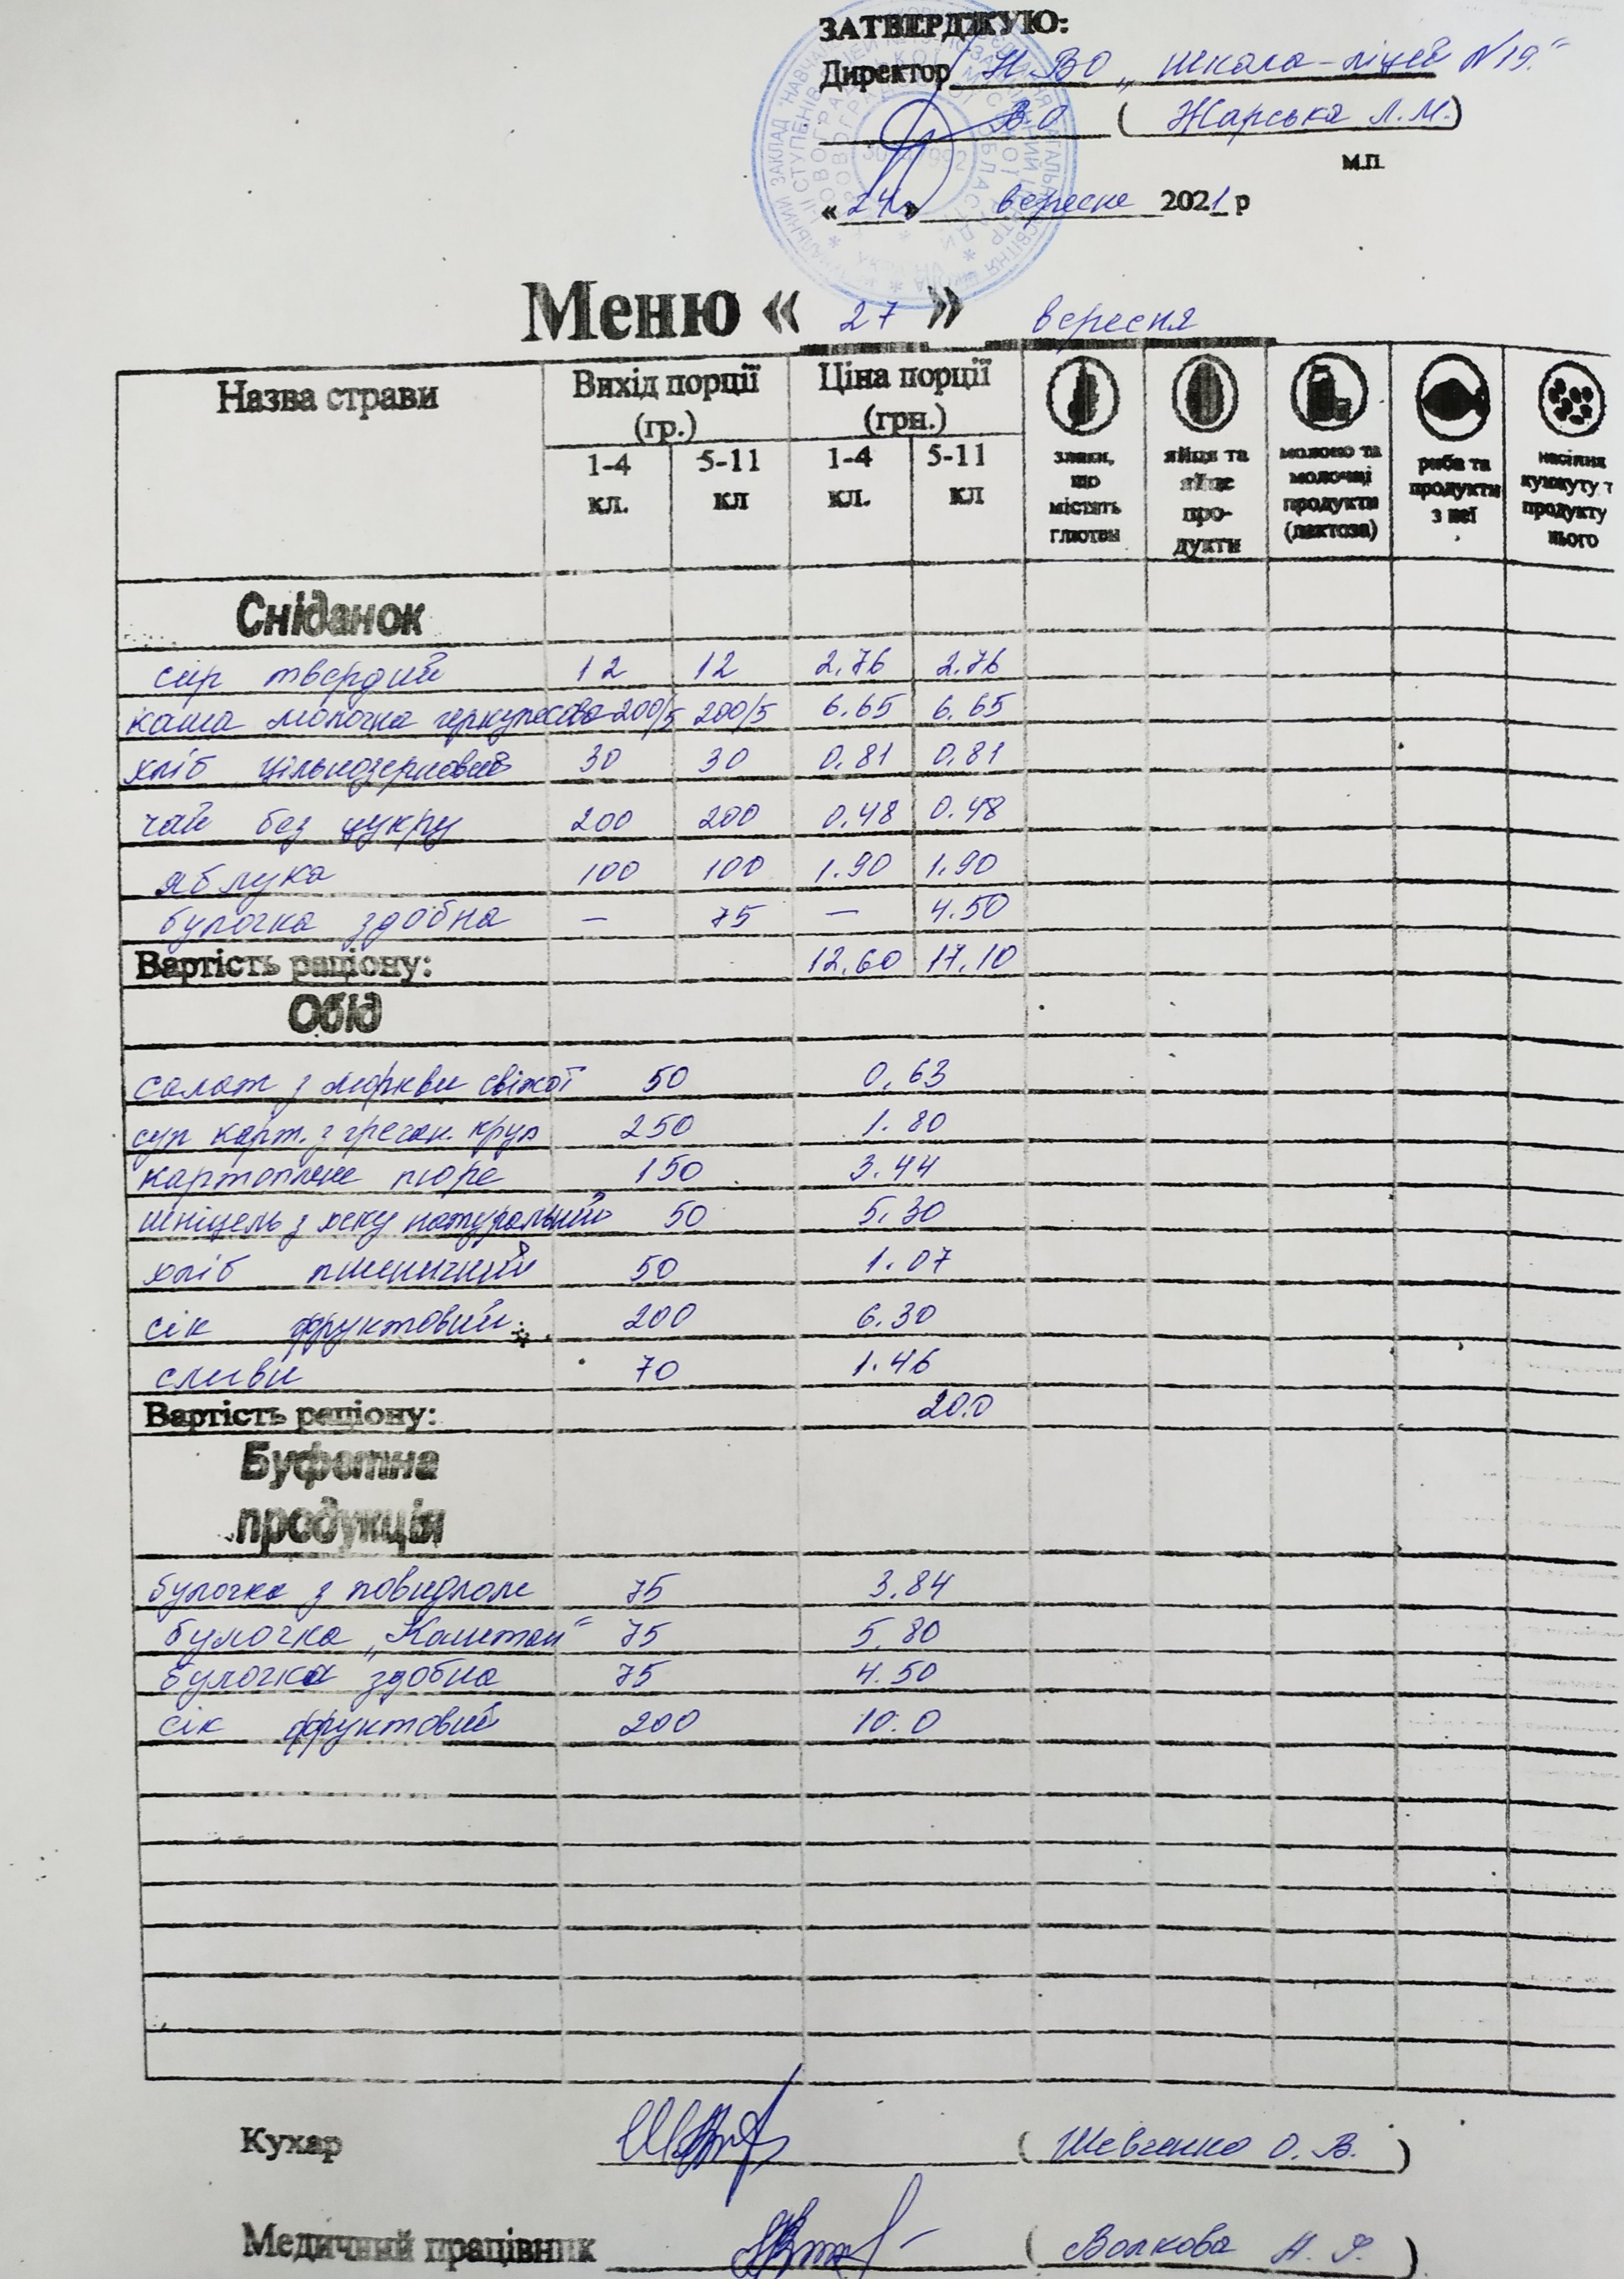 ЗАТВЕРДЖУЮ:
Директор НВО „школа-ліцей №19"
В.О ( Жарська Л.М.)
м.п.
« 24 » вересня 2021 р
Меню « 27 » вересня
Назва страви Вихід порції (гр.) Ціна порції (грн.)
1-4 кл. 5-11 кл 1-4 кл. 5-11 кл
злаки, що містять глютен
яйця та яйце про-дукти
молоко та молочні продукти (лактоза)
риба та продукти з неї
насіння кунжуту т продукту нього
Сніданок
сир твердий 12 12 2.76 2.76
каша молочна геркулесова 200/5 200/5 6.65 6.65
хліб цільнозерновий 30 30 0.81 0.81
чай без цукру 200 200 0.48 0.48
яблука 100 100 1.90 1.90
булочка здобна — 75 — 4.50
Вартість раціону: 12.60 17.10
Обід
салат з моркви свіжої 50 0,63
суп карт. з гречан. круп 250 1.80
картопляне пюре 150 3.44
шніцель з хеку натуральний 50 5.30
хліб пшеничний 50 1.07
сік фруктовий 200 6.30
сливи 70 1.46
Вартість раціону: 20.0
Буфетна
продукція
булочка з повидлом 75 3.84
булочка „Каштан" 75 5.80
булочка здобна 75 4.50
сік фруктовий 200 10.0
Кухар ( Шевченко О. В. )
Медичний працівник ( Волкова Н. Ф. )